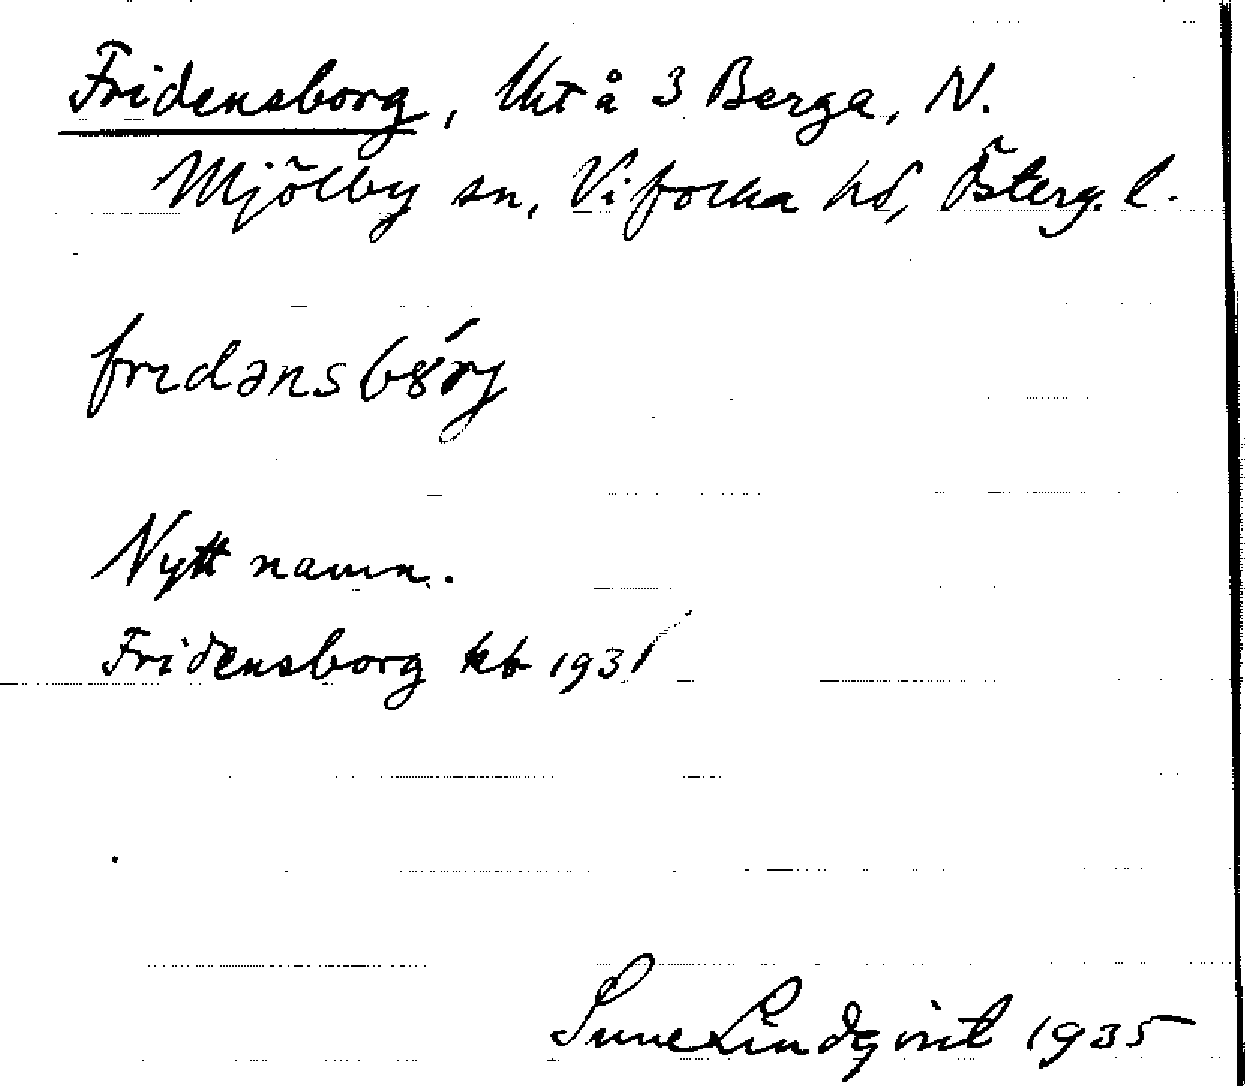 Fridensborg, Ukt å 3 Berga, N.
Mjölby sn, Vifolka hd, Österg. l.
fridənsbȣ́rj
Nytt namn.
Fridensborg kb 1931
Sune Lindqvist 1935